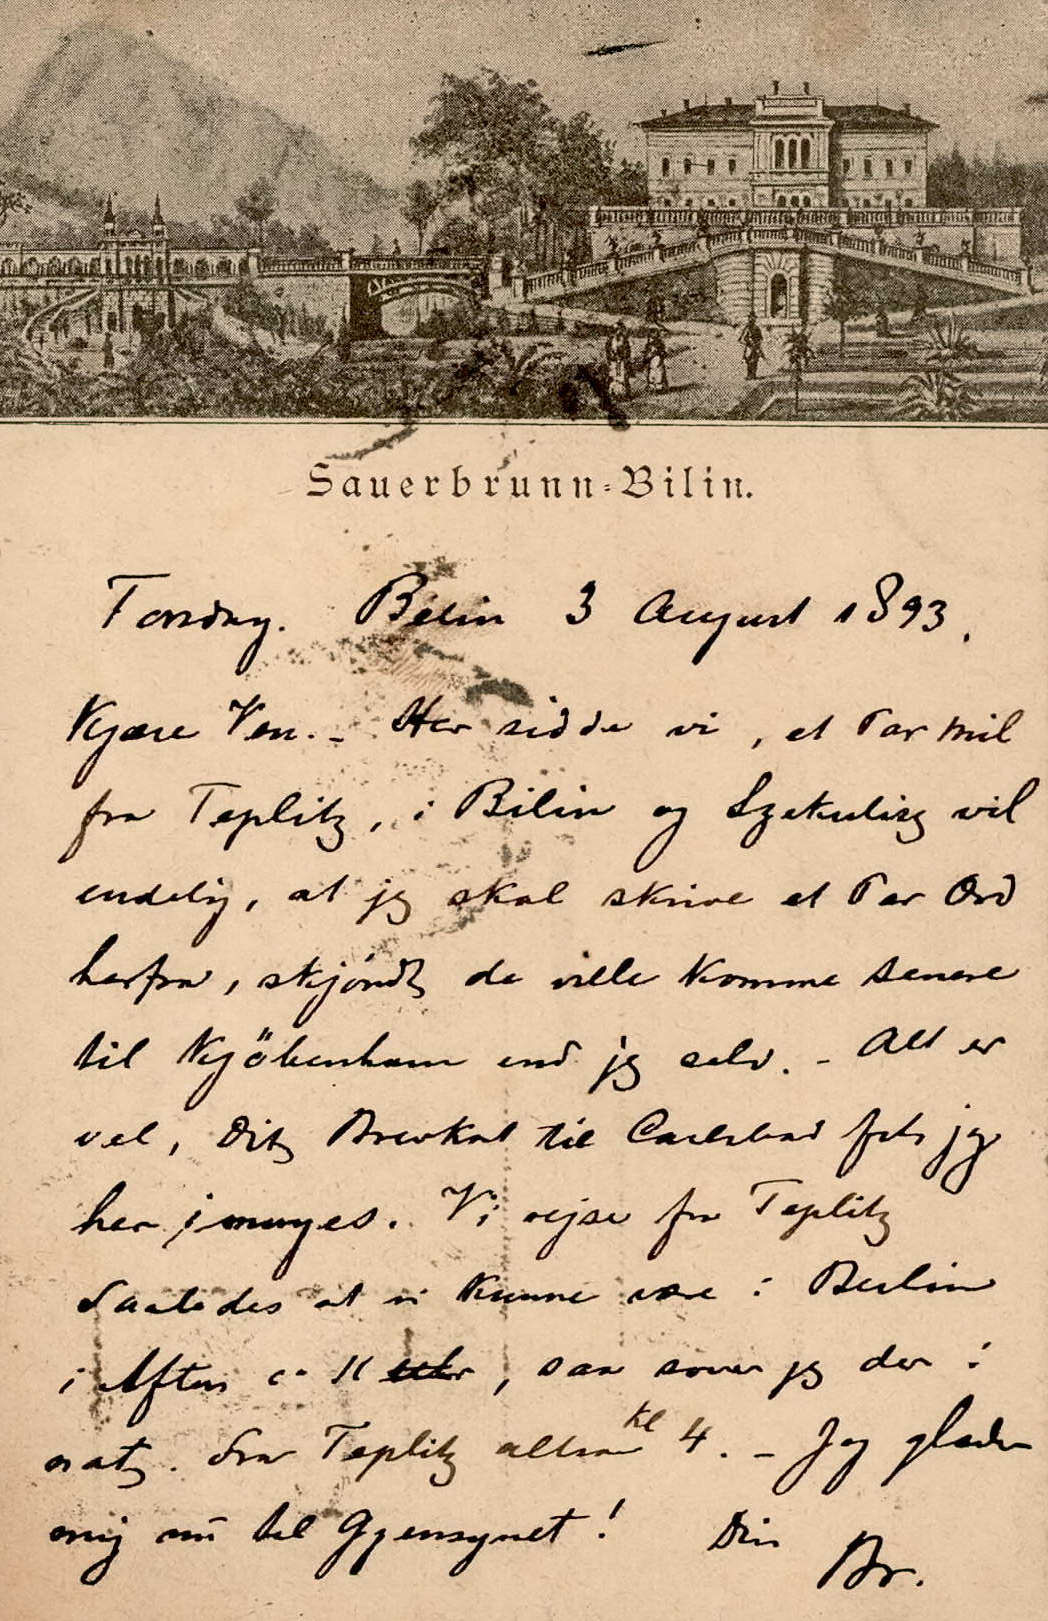 Sauerbrunn-Bilin.
Torsdag. Bilin 3 August 1893.
Kjære Ven. - Her sidde vi, et Par Mil
fra Teplitz, i Bilin og Szekulisz vil
endelig, at jeg skal skrive et Par Ord
herfra, skjöndt de ville komme senere
til Kjöbenhavn end jeg selv. - Alt er
vel, Dit Brevkort til Carlsbad fik jeg
her imorges. Vi rejse fra Teplitz
saaledes at vi kunne være i Berlin
i Aften c. 11, saa sover jeg der i
nat. Fra Teplitz altsaa kl 4. - Jeg glæder
mig nu til Gjensynet! Din
Br.